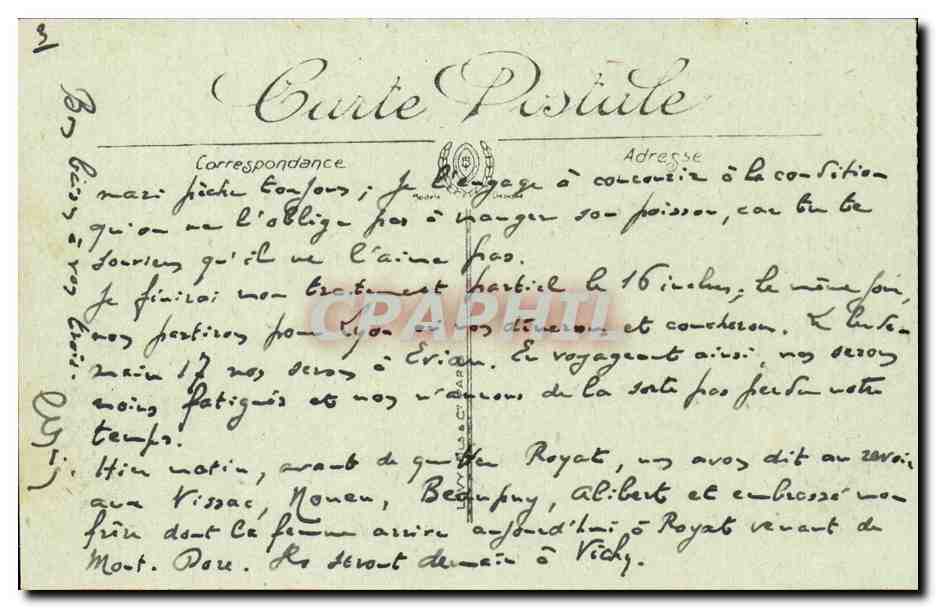 3
Carte Postale
Correspondance
Adresse
mari pêche toujours ; je l'engage à concourir à la condition
qu'on ne l'oblige pas à manger son poisson, car tu te
souviens qu'il ne l'aime pas.
Je finirai mon traitement partiel le 16 inclus ; le même soir,
nous partirons pour Lyon où nous dînerons et coucherons. Le lende-
main 17 nous serons à Evian. En voyageant ainsi, nous serons
moins fatigués et nous n'aurons de la sorte pas perdu notre
temps.
Hier matin, avant de quitter Royat, nous avons dit au revoir
aux Vissac, Beaupuy, Alibert et embrassé mon
frère dont la femme arrive aujourd'hui à Royat venant du
Mont-Dore. Ils seront demain à Vichy.
Bons baisers à vous trois.
CPAPHIL